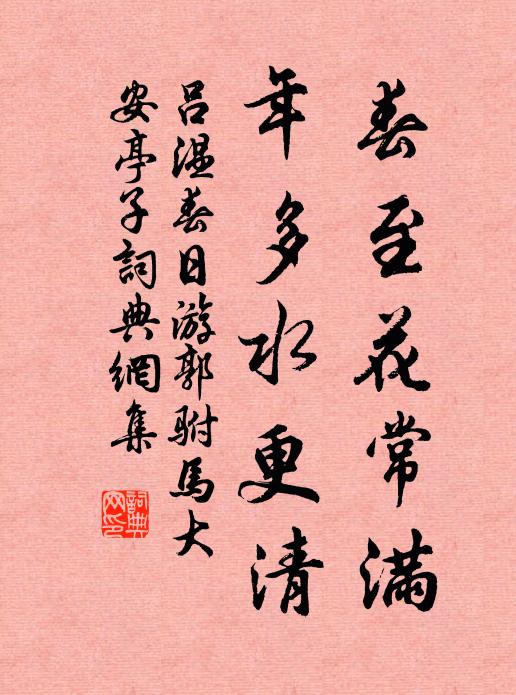 春至花常滿
年多水更清
呂溫春日游郭駙馬大
安亭子詞典網集
詞典網印